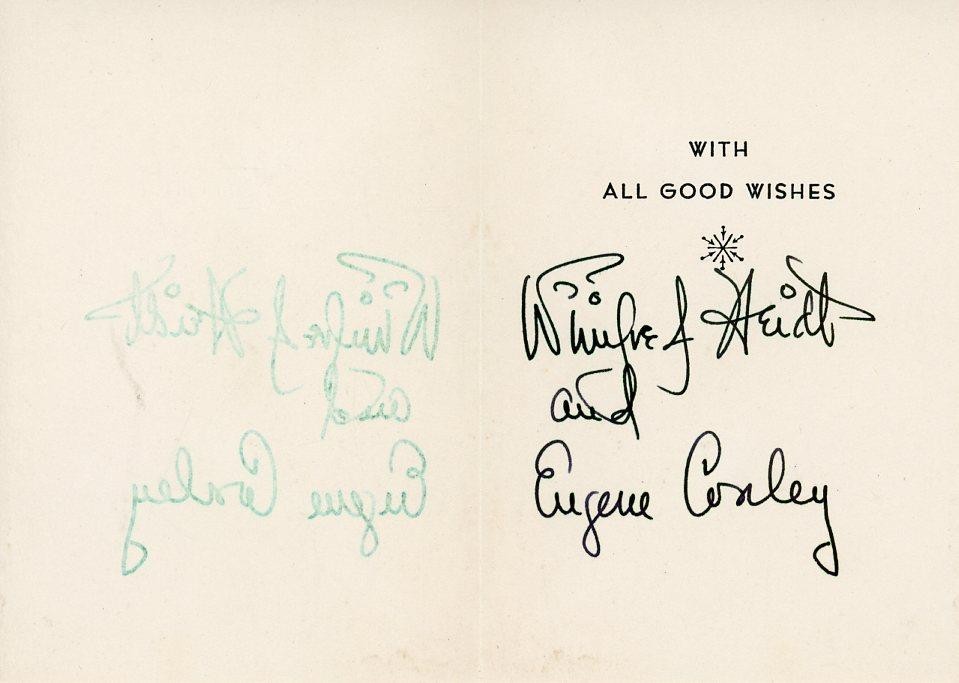 WITH
ALL GOOD WISHES
Winifred Heidt
and
Eugene Conley